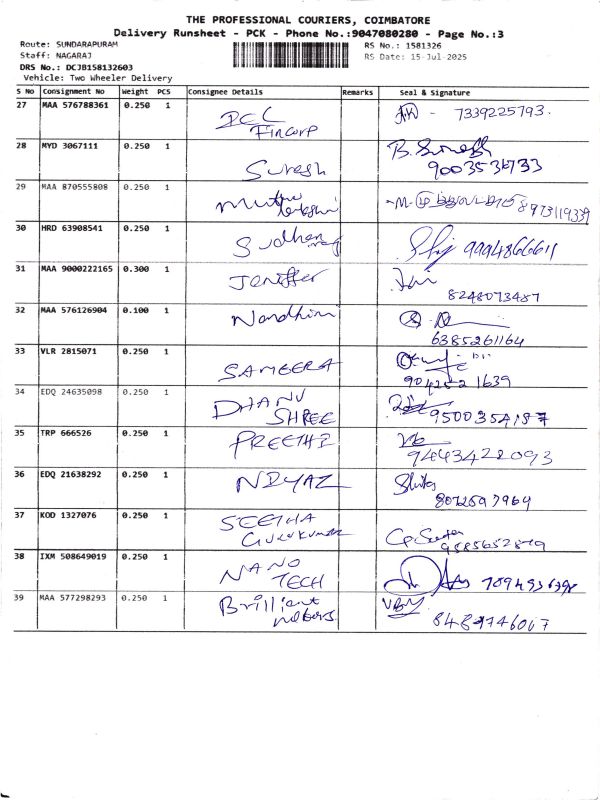 THE PROFESSIONAL COURIERS, COIMBATORE
Delivery Runsheet - PCK - Phone No.:9047080280 - Page No.:3
Route: SUNDARAPURAM RS No.: 1581326
Staff: NAGARAJ RS Date: 15-Jul-2025
DRS No.: DCJB158132603
Vehicle: Two Wheeler Delivery
S No Consignment No Weight PCS Consignee Details Remarks Seal & Signature
27 MAA 576788361 0.250 1 7339225793.
Fincorp
28 MYD 3067111 0.250 1 Suresh B. Suresh
29 MAA 870555808 0.250 1 Muthu 8973119339
30 HRD 63908541 0.250 1 9994866611
31 MAA 9000222165 0.300 1 Jeniffer
8248073487
32 MAA 576126904 0.100 1 Nandhini
6385261164
33 VLR 2815071 0.250 1 SAMEERA
34 EDQ 24635098 0.250 1 DHANU
SHREE
35 TRP 666526 0.250 1 PREETHI
9443422093
36 EDQ 21638292 0.250 1 NIYAZ
37 KOD 1327076 0.250 1 SEETHA
38 IXM 508649019 0.250 1 NANO
TECH
39 MAA 577298293 0.250 1 Brilliant